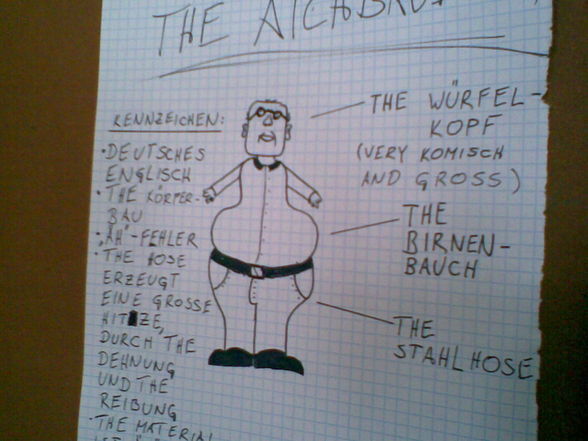 THE
KENNZEICHEN:
• DEUTSCHES
ENGLISCH
• THE KÖRPER-
BAU
• „ÄH"-FEHLER
• THE HOSE
ERZEUGT
EINE GROSSE
HITZE,
DURCH THE
DEHNUNG
UND THE
REIBUNG
• THE MATERIAL
THE WÜRFEL-
KOPF
(VERY KOMISCH
AND GROSS)
THE
BIRNEN-
BAUCH
THE
STAHLHOSE